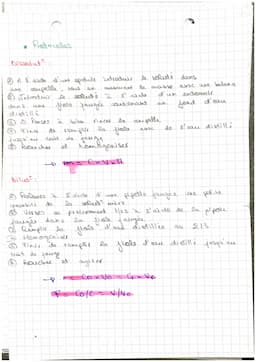 • Protocoles
Dissolut°
① À l'aide d'une spatule introduire le soluté dans
une coupelle, tout en mesurant la masse avec une balance
② Introduire le soluté à l'aide d'un entonnoir
dans une fiole jaugée contenant un fond d'eau
distillé
③ Penser à bien rincer la coupelle
④ Finir de remplir la fiole avec de l'eau distillé
jusqu'au trait de jauge
⑤ Boucher et homogénéiser
Dilut°
① Prélever à l'aide d'une pipette jaugée
de la solut° mère
② Verser le prélèvement à l'aide de la pipette
jaugée dans la fiole jaugée
③ Remplir la fiole d'eau distillée au 2/3
④ Homogénéiser
⑤ Finir de remplir la fiole d'eau distillé jusqu'au
trait de jauge
⑥ Boucher et agiter
F = C0/C = V/V0